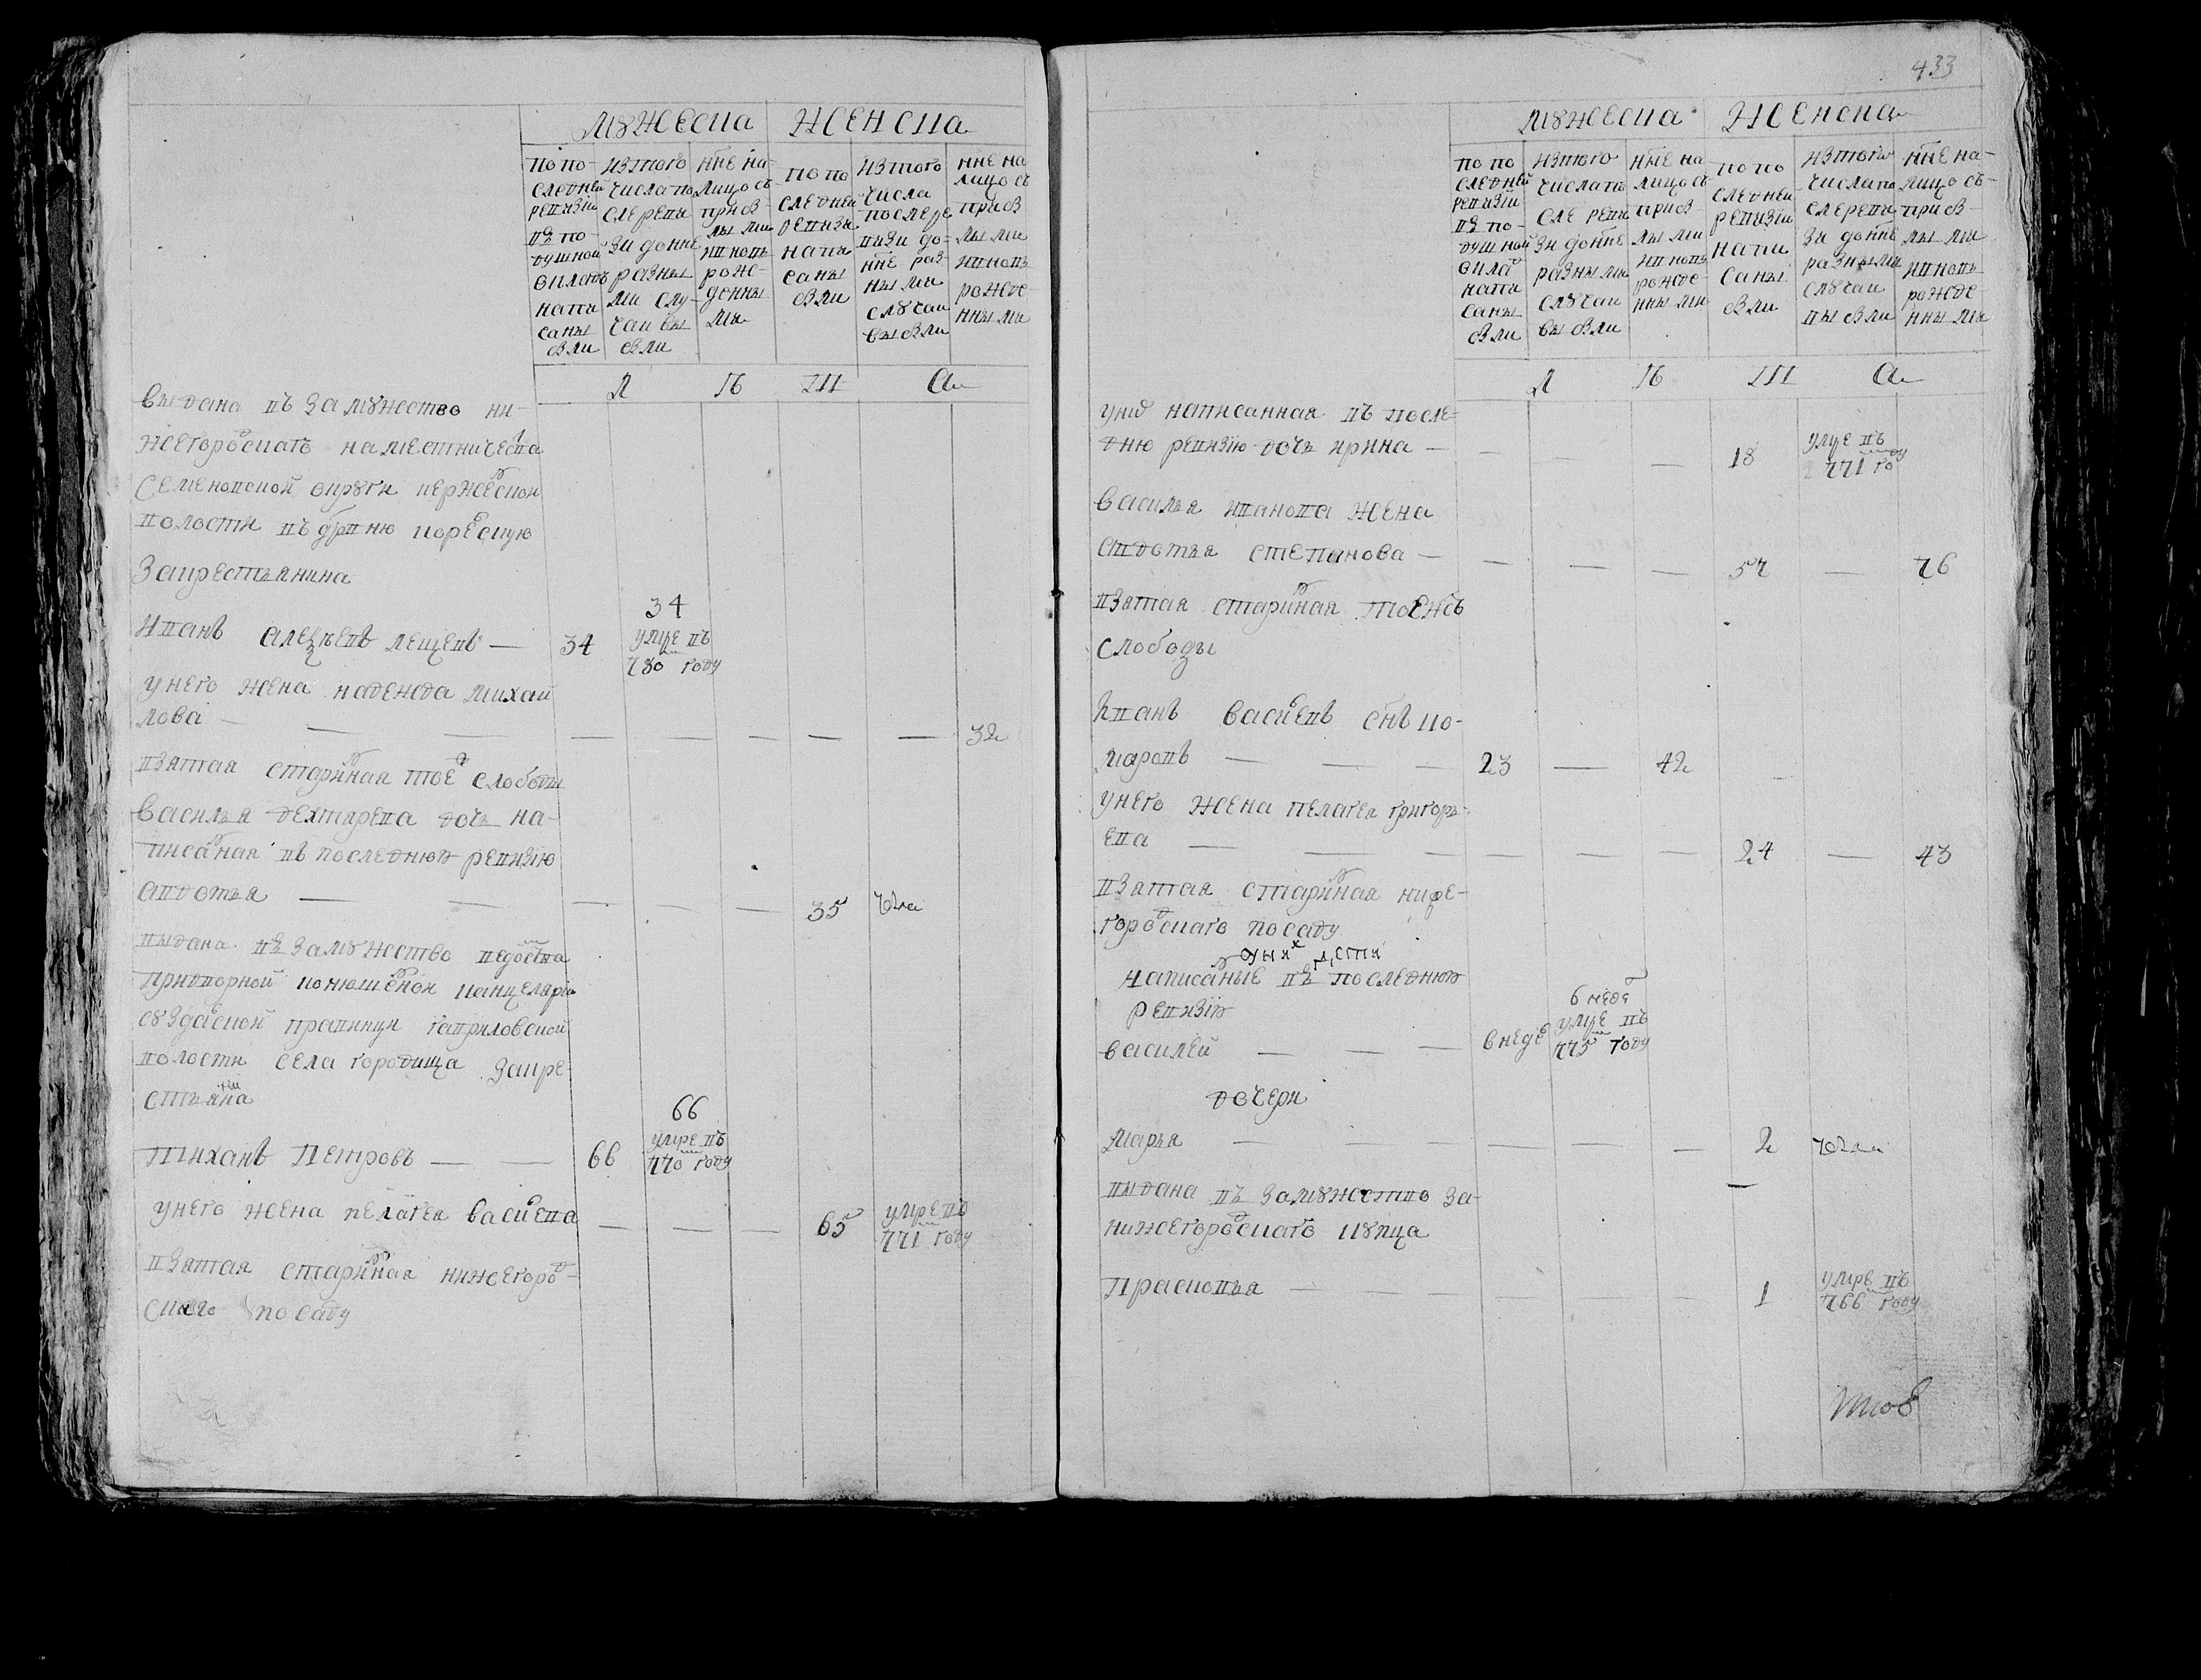 мужеска женска
по по-
следней
ревизіи
въ по-
душной
окладъ
напи
саны
были
из того
числа по
сле реви
зи до нне
разны
ми слу-
чаи вы
были
нне на-
лицо съ
прибы
лыми
и вновь
рож-
денны
ми
по по
следней
ревизи
напи
саны
были
из того
числа
после ре
визи до-
нне раз
ными
случаи
выбыли
нне на
лицо съ
прибы
лыми
и вновь
рожде
нными
Л Ѣ Т А
выдана въ замужство ни-
жегородскаго наместничества
семеновской округи керженской
волости въ дрвню корескую
за крестьянина
34
иванъ алеѯѣевъ лещевъ — 34 умре въ
780 году
у него жена надежда михай
лова — 32
взятая старинная той слободы
василья дехтярева дочь на-
писанная въ последнюю ревизію
авдотья — 35
выдана въ замужство ведомства
придворной конюшенной канцелярии
суздалской правинцы гавриловской
волости села городища за кре-
стьянина
66
тиханъ петровъ — 66 умре въ
770 году
у него жена пелагея василева — 65 умре въ
771 году
взятая старинная нижегород-
скаго посаду
433
мужеска женска
по по
следней
ревизіи
въ по-
душной
оклад
напи
саны
были
из того
числа по
сле реви
зи до нне
разными
случаи
выбыли
нне на
лицо съ
прибы-
лыми
и вновь
рожде
нными
по по
следней
ревизіи
напи
саны
были
из того
числа по
сле реви
зи до нне
разными
случаи
выбыли
нне на-
лицо съ-
прибы-
лыми
и вновь
рожде-
нными
Л Ѣ Т А
у них написанная въ после-
дню ревизию дочь ирина — 18 умре въ
771 го
василья иванова жена
авдотья степанова — 57 — 76
взятая старинная тоежъ
слободы
иванъ василевъ снъ ко-
маровъ — 23 — 42
у него жена пелагея григорь-
ева — 24 — 43
взятая старинная ниже-
городскаго посаду
у них дети
написаные въ последнюю
ревизию
6 неде
василей — 6 неде умре въ
775 году
дочери
марья — 2
выдана въ замужство за-
нижегородскаго купца
прасковья — 1 умре въ
766 году